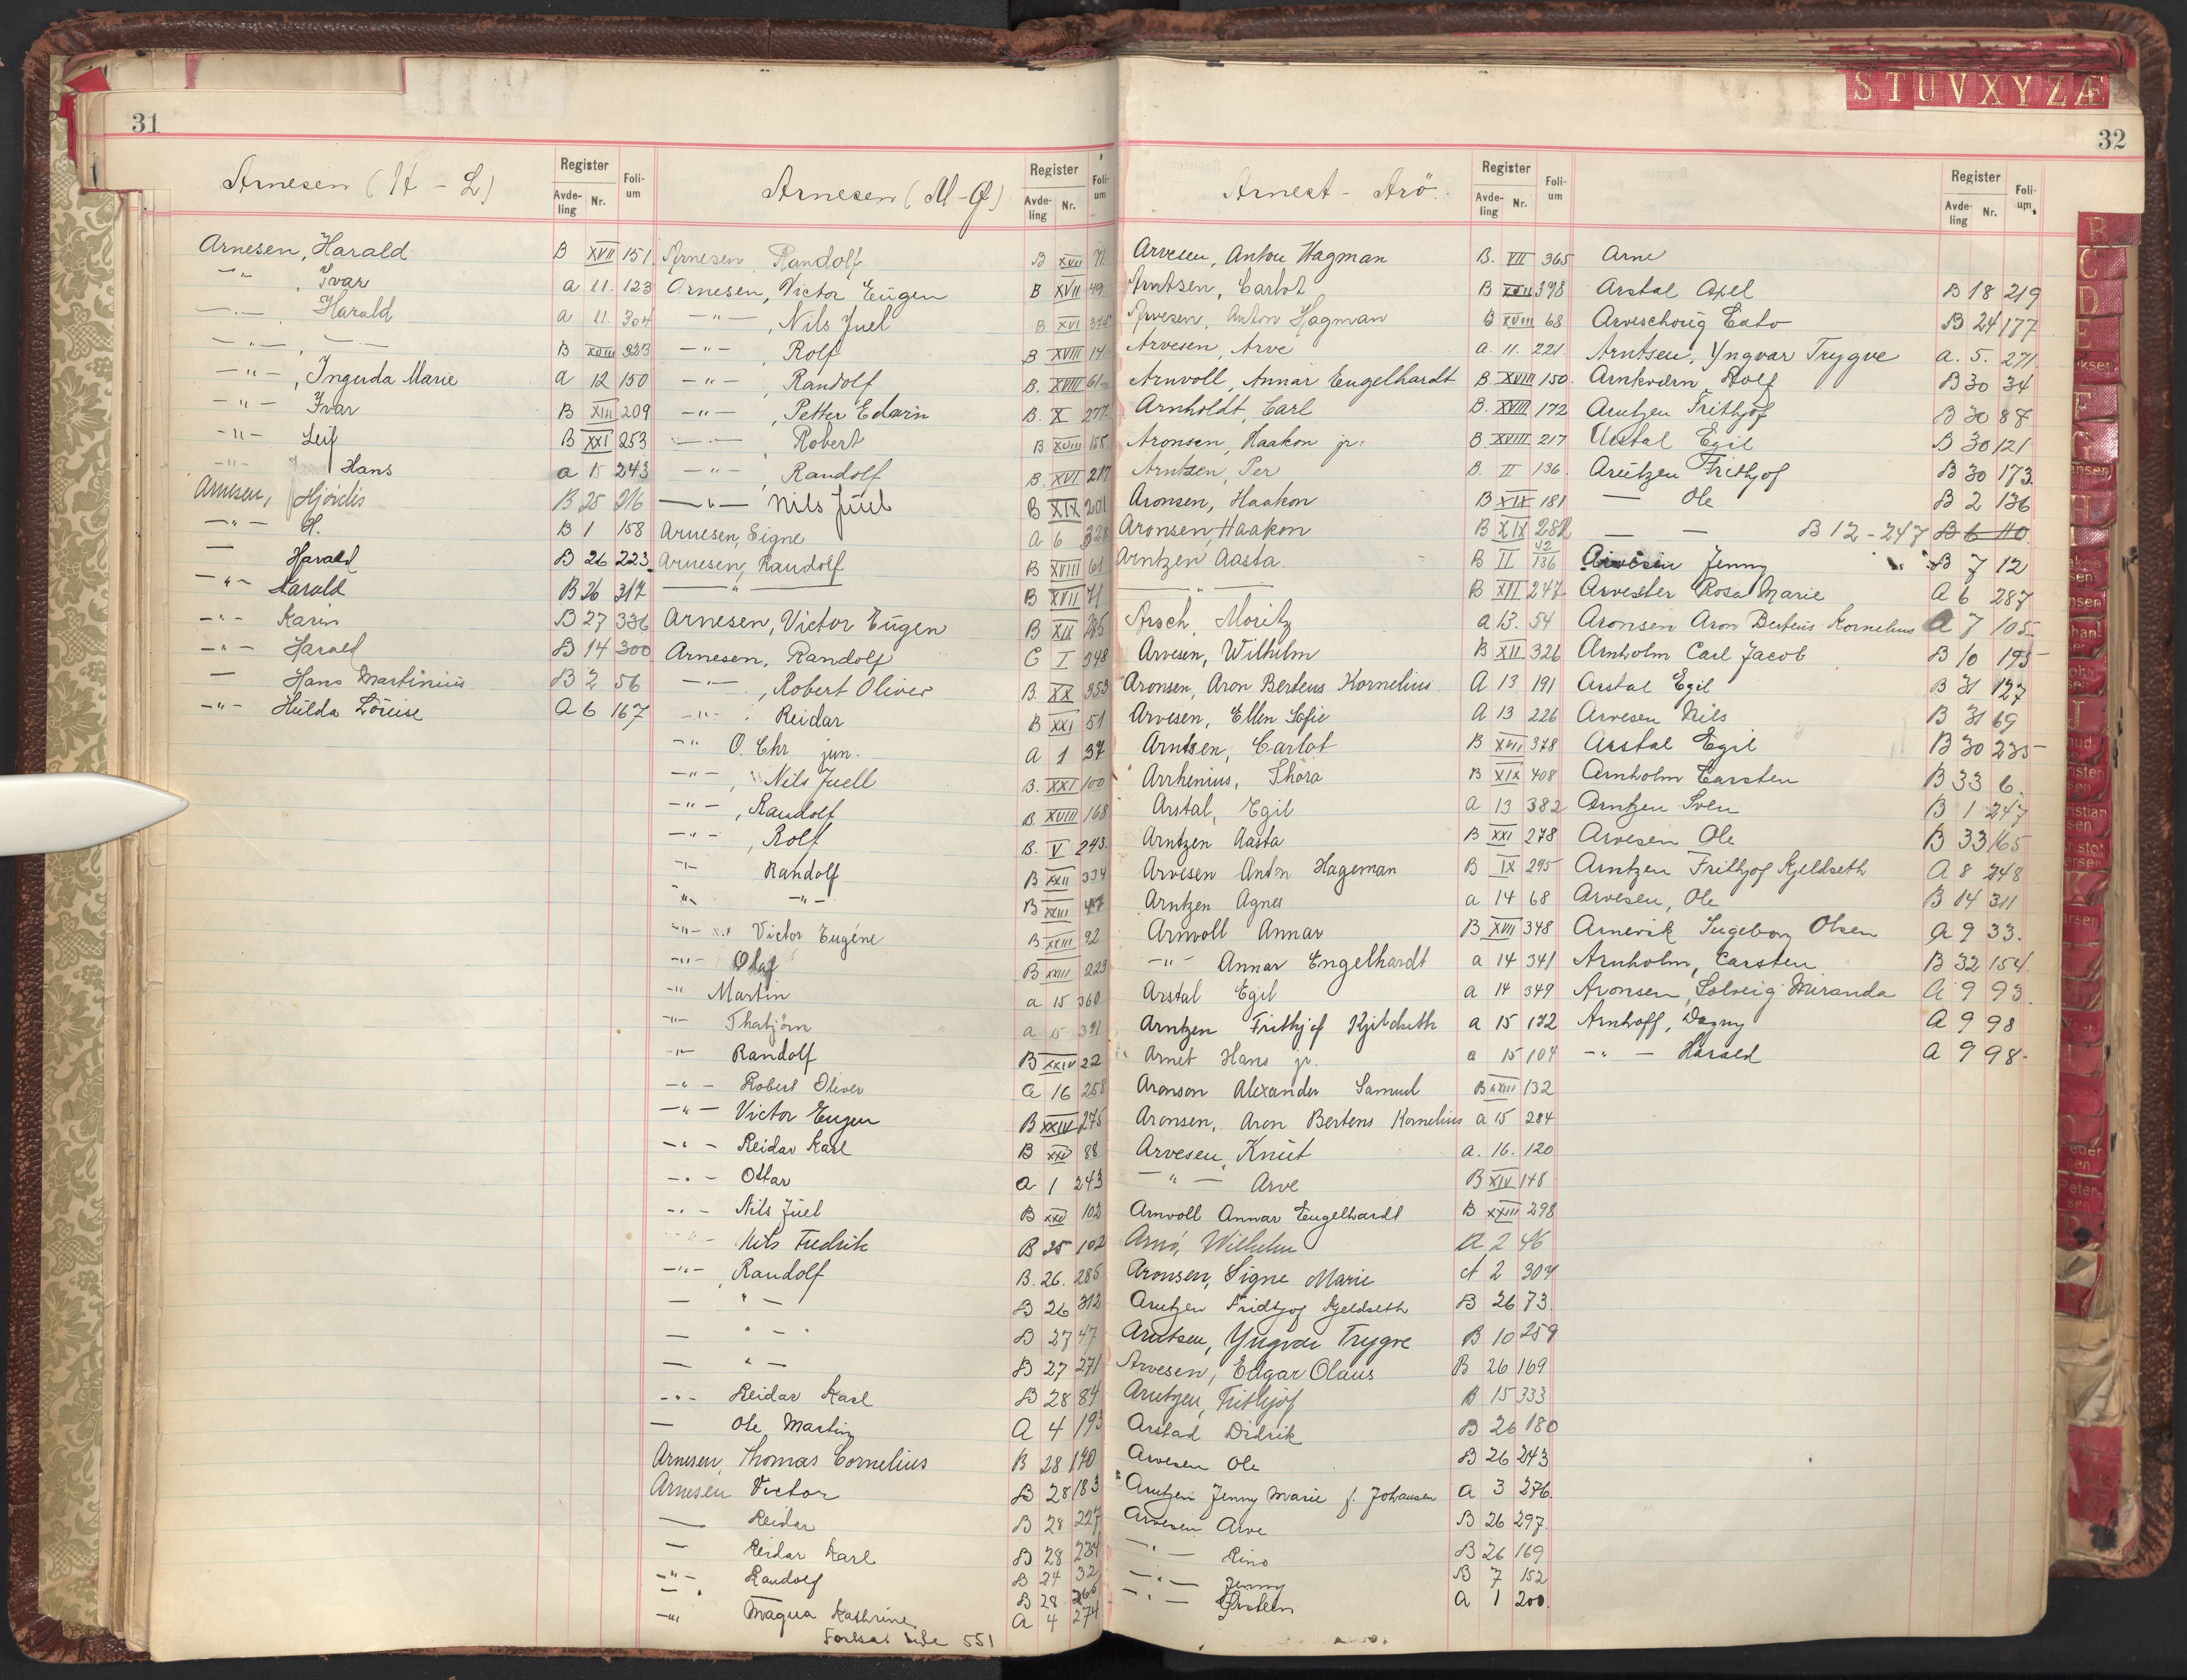 31
Arnesen (H - L)
Register
Avde-ling Nr.
Foli-um
Arnesen, Harald B XVII 151
-"- , Ivar a 11. 123
-"- , Harald a 11. 304
-"- , -"- B XVIII 323
-"- , Ingerda Marie a 12 150
-"- Ivar B XIII 209
-"- Leif B XXI 253
-"- Hans a 15 243
Arnesen, Hjördis B 25 216
-"- H. B 1 158
— Harald B 26 223
-"- Harald B 26 317
-"- Karin B 27 336
-"- Harald B 14 300
— Hans Martinius B 2 56
-"- Hulda Louise A 6 167
Arnesen (M - Q)
Register
Avde-ling Nr.
Foli-um
Arnesen Randolf B XVII 71
Arnesen, Victor Eugen B XVII 49
-"- , Nils Juel B. XVI
-"- , Rolf B XVIII 14
-"- , Randolf B. XVIII 61
-"- , Petter Edwin B. X 277
-"- , Robert B XVIII 155
-"- , Randolf B. XVI 217
-"- Nils Juul B XIX 201
Arnesen, Signe A 6 328
Arnesen, Randolf B XVIII 61
-"- B XVII 71
Arnesen, Victor Eugen B XIX 285
Arnesen, Randolf C I 348
-"- , Robert Oliver B XX 353
-"- , Reidar B XXI 51
-"- O. Chr jun. A 1 37
-"- , Nils Juell B. XXI 100
-"- , Randolf B. XVIII 168
-"- , Rolf B. V 243.
-"- Randolf B XXII 334
-"- -"- B XXIII 47
-"- Victor Eugéne B XXIII 92
-"- Olaf B XXIII 223
-"- Martin a 15 360
-"- Thabjörn a 15 391
-"- Randolf B XXIV 22
-"- Robert Oliver a 16 258
-"- Victor Eugen B XXIV 275
-"- Reidar Karl B XXV 88
-"- Ottar A 1 243
-"- Nils Juel B XXV 102
-"- Nils Fredrik B 25 102
-"- , Randolf B. 26. 285
— " — B 26 312
— " - " B 27 47
— " — B 27 271
-"- Reidar Karl B 28 84
— Ole Martin A 4 193
Arnesen, Thomas Cornelius B 28 140
Arnesen Victor B 28 183
— Reidar B 28 227
— Reidar Karl B 28 234
-"- Randolf B 24 32
-"- B 28 266
-"- Magna Kathrine A 4 274
Fortsat side 551
32
Arnest - Arö.
Register
Avde-ling Nr.
Foli-um
Arvesen, Anton Hagman B. VII 365
Arntsen, Carlot B XVII 378
Arvesen, Anton Hagman B XVIII 68
Arvesen, Arve a. 11. 221.
Arnvoll, Annar Engelhardt B. XVIII 150.
Arnholdt, Carl B. XVIII 172
Aronsen, Haakon jr: B. XVIII 217
Arntzen, Per B. II 136.
Aronsen, Haakon B XIX 181
Aronsen, Haakon B XIX 282
Arntzen Aasta. B II 42 136
-"- B XII 247
Arsch, Moritz a 13. 54
Arvesen, Wilhelm B XII 326
Aronsen, Aron Berteus Kornelius A 13 191
Arvesen, Ellen Sofie A 13 226
Arntsen, Carlot B XVII 378
Arrhenius, Thora B XIX 408
Arstal, Egil a 13 382
Arntzen Aasta B XXI 278
Arvesen Anton Hageman B IX 295
Arntzen Agnes a 14 68
Arnvoll Annar B XVII 348
-"- Annar Engelhardt a 14 341
Arstal Egil a 14 349
Arntzen Frithjof Kjeldseth a 15 172
Arnet Hans jr. a 15 104
Aronson Alexander Samuel B XXIII 132
Aronsen, Aron Bertens Kornelius a 15 284
Arvesen, Knut a. 16. 120
-"- Arve B XIV 148
Arnvoll Annar Engelhardt B XXIII 298
Arnö, Wilhelm A 2 46
Aronsen, Signe Marie A 2 304
Arntzen Fridtjof Kjeldseth B 26 73.
Arntsen, Yngvar Trygve B 10 259
Arvesen, Edgar Olaus B 26 169
Arntzen, Frithjof B 15 333
Arstad Didrik B 26 180
Arvesen Ole B 26 243
Arntzen Jenny Marie f. Johansen A 3 276.
Arvesen Arve B 26 297.
-"- Rino B 26 169
-"- Jenny B 7 152
-"- A 1 200.
Register
Avde-ling Nr.
Foli-um
Arne
Arstal Axel B 18 219
Arveschoug Eato B 24 177
Arntsen, Yngvar Trygve a. 5. 271.
Arnkværn, Rolf B 30 34
Arntzen Frithjof B 30 87
Arstal Egil B 30 121
Arntzen Frithjof B 30 173.
— Ole B 2 136
— — B 12 - 247 B 6 110
Arvesen Jenny B 7 12
Arvester Rosa Marie A 6 287
Aronsen Aron Berteus Kornelius A 7 105
Arnholm Carl Jacob B 10 195
Arstal Egil B 31 127
Arvesen Nils B 31 69
Arstal Egil B 30 235
Arnholm Carsten B 33 6.
Arntzen Sven B 1 247
Arvesen Ole B 33 165
Arntzen Frithjof Kjeldseth A 8 248
Arvesen, Ole B 14 311
Arnevik Ingeborg Olsen A 9 33.
Arnholm, Carsten B 32 154.
Aronsen, Solveig Miranda A 9 93.
Arnhoff, Dagny A 9 98
-"- Harald A 9 98-
S T U V X Y Z Æ
B
C
D
E
F
G
H
J